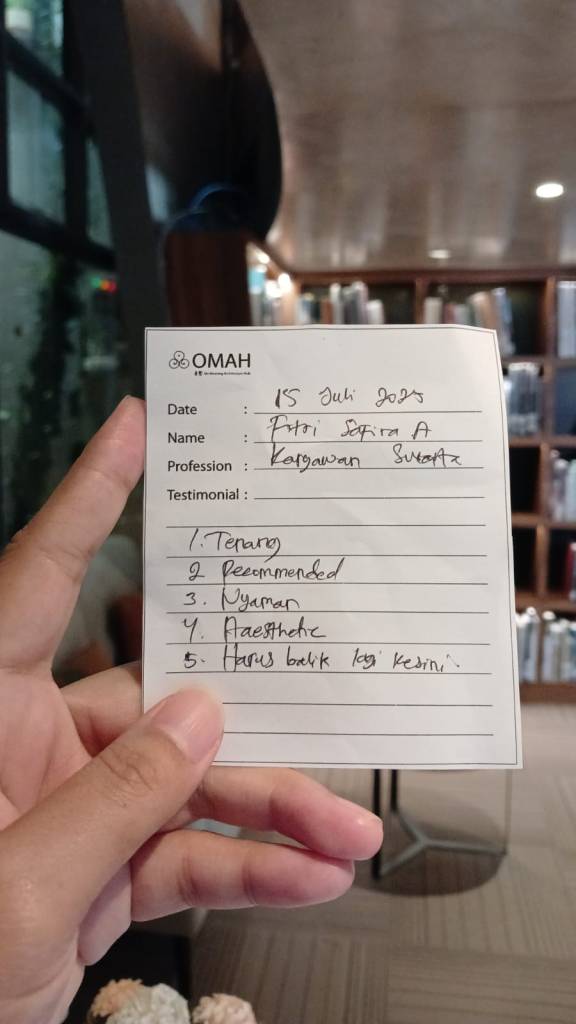 OMAH
Date : 15 Juli 2025
Name : Fitri Safira A
Profession : Karyawan Swasta
Testimonial :
1. Tenang
2 Recommended
3. Nyaman
4. Aaesthetic
5. Harus balik lagi kesini